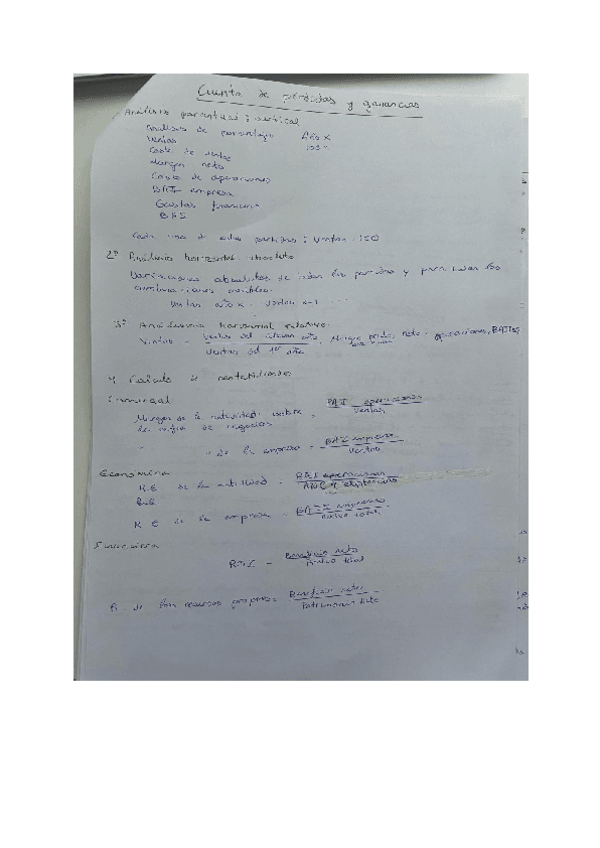 Cuenta de pérdidas y ganancias
Análisis porcentual; vertical
Análisis de porcentajes Año X
Ventas 100%
Coste de ventas
Margen neto
Coste de operaciones
BAIT empresa
Gastos financieros
BAI
Cada una de estas partidas ÷ Ventas · 100
2º Análisis horizontal absoluto
Variaciones absolutas de todas las partidas y
Ventas año x - Ventas x-1 ...
3º Análisis horizontal relativo
Ventas = Ventas del último año
Ventas del 1er año
neto operaciones, BAIT
4 Cálculo de rentabilidades
Comercial
Margen de la actividad sobre = BAIT operaciones
la cifra de negocios Ventas
" " de la empresa = BAIT empresa
Ventas
Económica
R.E de la actividad = BAIT operaciones
R.E de la empresa = BAIT empresa
Activo total
Financiera
= Beneficio neto
Activo total
R de los recursos propios = Beneficio neto
Patrimonio neto